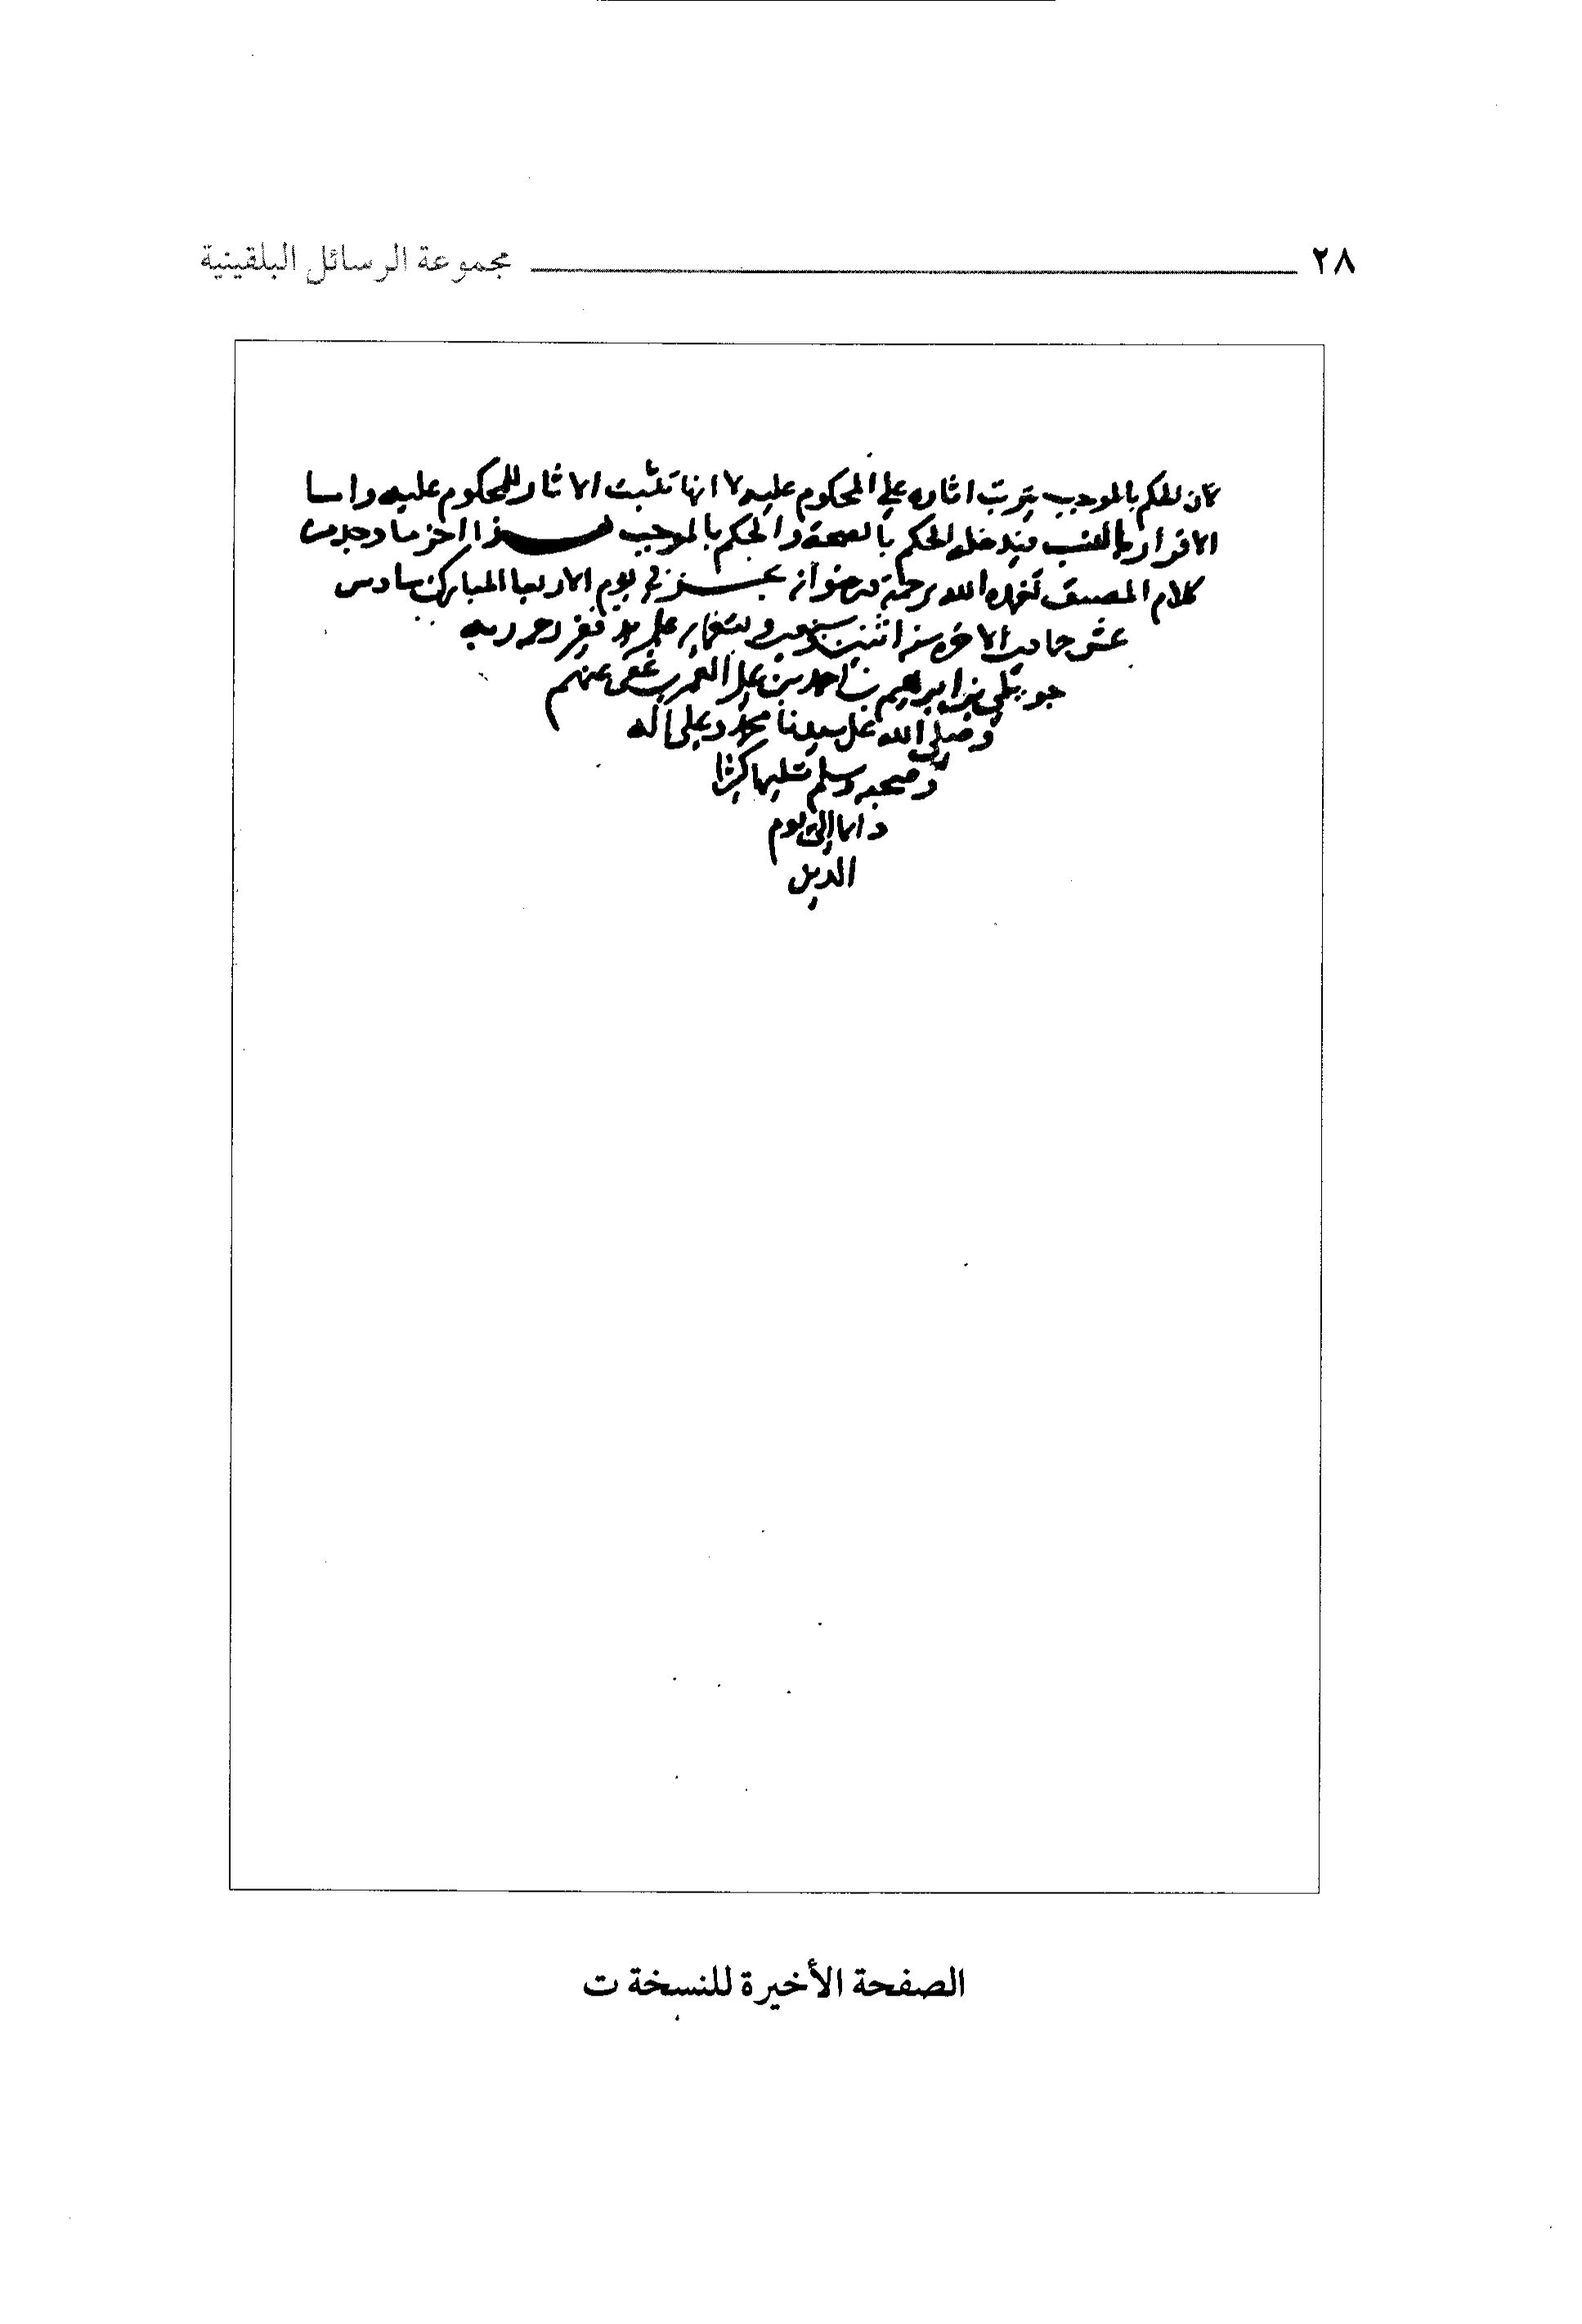 ٢٨ مجموعة الرسائل البلقينية
كان للحكم بالموجب يترتب اثاره علي المحكوم عليه لا انها تثبت الاثار للمحكوم عليه واما
الاقرار بالنسب فيدخله الحكم بالصحة والحكم بالموجب هذا اخر ما وجد من
كلام المصنف تغمده الله برحمته ورضوانه نجز في يوم الاربعا المبارك سادس
عشر جمادي الاخره سنه اثنتين وثمانمايه علي يد فقير رحمة ربه
بن ابراهيم بن احمد بن علي عفي عنهم
وصلي الله على سيدنا محمد وعلى اله
وصحبه وسلم تسليما كثيرا
دايما الى يوم
الدين
الصفحة الأخيرة للنسخة ت